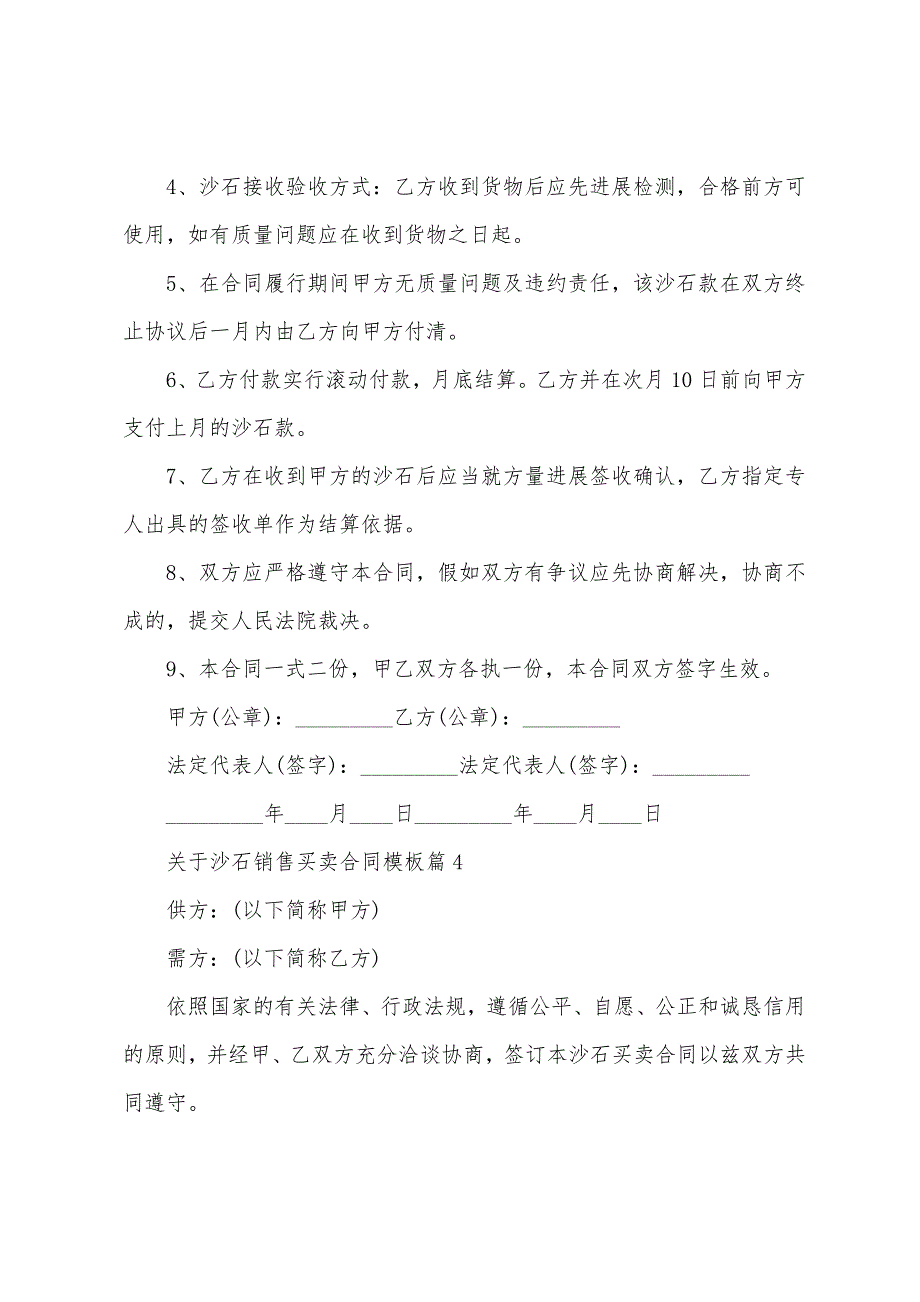 4、沙石接收验收方式：乙方收到货物后应先进展检测，合格前方可
使用，如有质量问题应在收到货物之日起。
5、在合同履行期间甲方无质量问题及违约责任，该沙石款在双方终
止协议后一月内由乙方向甲方付清。
6、乙方付款实行滚动付款，月底结算。乙方并在次月 10 日前向甲方
支付上月的沙石款。
7、乙方在收到甲方的沙石后应当就方量进展签收确认，乙方指定专
人出具的签收单作为结算依据。
8、双方应严格遵守本合同，假如双方有争议应先协商解决，协商不
成的，提交人民法院裁决。
9、本合同一式二份，甲乙双方各执一份，本合同双方签字生效。
甲方(公章)：_________乙方(公章)：_________
法定代表人(签字)：_________法定代表人(签字)：_________
_________年____月____日_________年____月____日
关于沙石销售买卖合同模板篇 4
供方：(以下简称甲方)
需方：(以下简称乙方)
依照国家的有关法律、行政法规，遵循公平、自愿、公正和诚恳信用
的原则，并经甲、乙双方充分洽谈协商，签订本沙石买卖合同以兹双方共
同遵守。